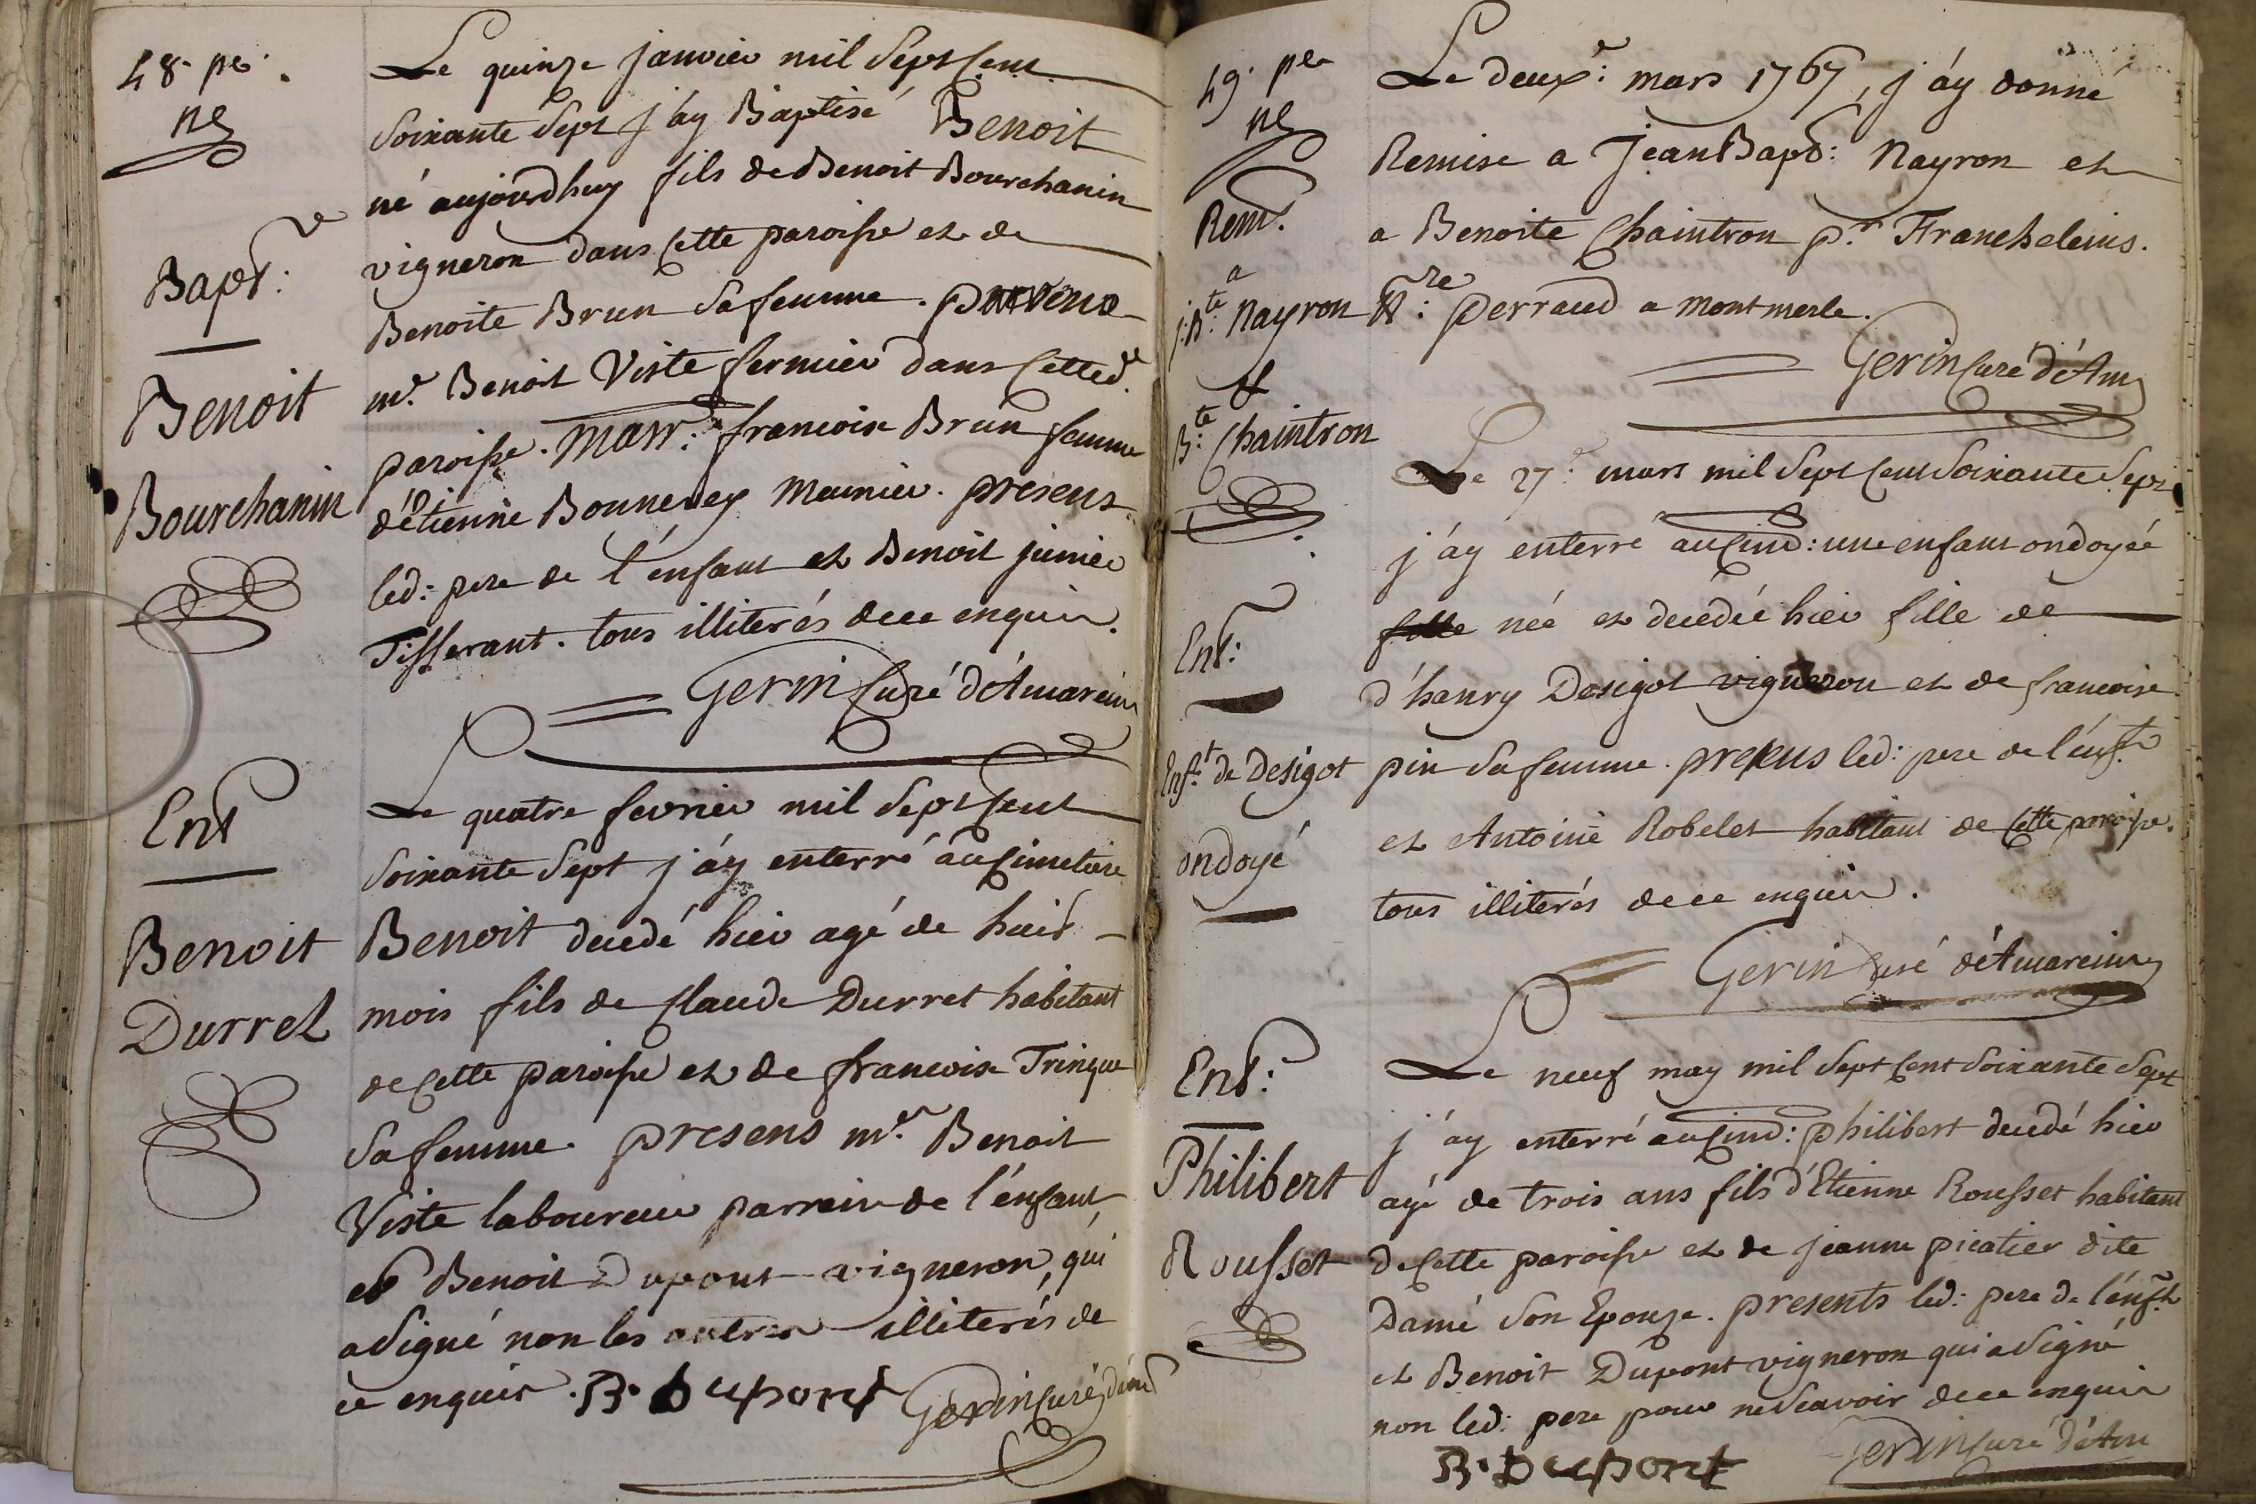 48. pe.
ne
Bapt:e
Benoit
Bourchanin
Le quinze janvier mil sept cent
soixante sept j'ay Baptisé Benoit
né aujourdhuy fils de Benoit Bourchanin
vigneron dans cette paroisse et de
Benoite Brun sa femme.
mr. Benoit Viste fermier dans cette de.
paroisse. Marr:e francoise Brun femme
d'étienne Bonnevey meunier. presens
led: pere de l'énfant et Benoit junier
Tisserant. tous illiterés de ce enquis.
Gerin Curé d'Amareins
Ent
Benoit
Durret
Le quatre fevrier mil sept cent
soixante sept j'ay enterré au cimetiere
Benoit decedé hier agé de huit
mois fils de Claude Durret habitant
de cette paroisse et de francoise Trinque
sa femme. presens mr. Benoit
Viste laboureur parrein de l'énfant
et Benoit Dupont vigneron, qui
a signé non les autres illiterés de
ce enquis. B. Dupont Gerin curé d'am
49. pe
ne
Rem.
a
j:B:te Nayron
&
B:te Chaintron
Le deux:e mars 1767, j'áy donné
Remise a Jean Bapt: Nayron et
a Benoite Chaintron pr. Francheleins.
Nre: perraud a montmerle.
Gerin Curé d'Am
Ent:
Enft: de Desigot
ondoyé
Le 27:e mars mil sept cent soixante sept
j'áy enterré au cim: une enfant ondoyée
née et decedée hier fille de
d'hanry Desigot vigneron et de francoise
pin sa femme. presens led: pere de l'énft
et Antoine Robelet habitant de cette paroisse.
tous illiterés de ce enquis.
Gerin Curé d'Amareins
Ent:
Philibert
Rousset
Le neuf may mil sept cent soixante sept
j'áy enterré au cim: philibert decedé hier
agé de trois ans fils d'Etienne Rousset habitant
de cette paroisse et de jeanne picatier dite
Damé son Epouze. presents led: pere de l'énft
et Benoit Dupont vigneron qui a signé
non led: pere pour ne scavoir de ce enquis
B. Dupont Gerin curé d'Am